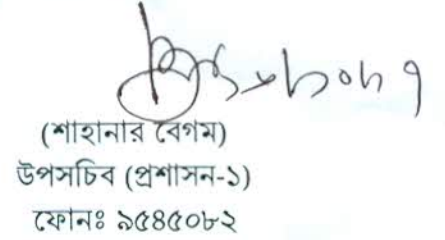 (শাহানার বেগম)
উপসচিব (প্রশাসন-১)
ফোনঃ ৯৫৪৫০৮২